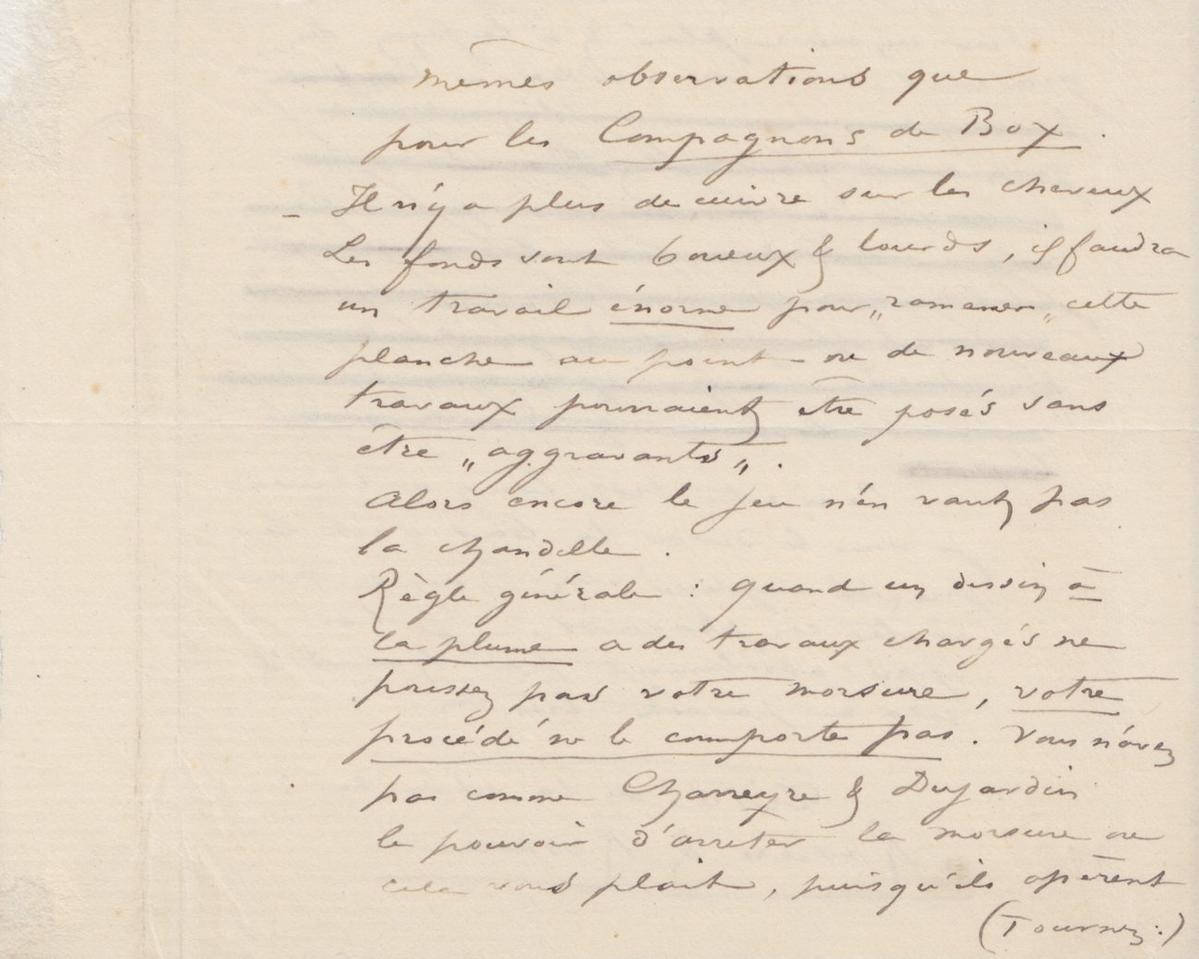 mêmes observations que
pour les Compagnons de Box.
- Il n'y a plus de cuivre sur les cheveux
Les fonds sont boueux & lourds, il faudra
un travail énorme pour „ramener„ cette
planche au point - ou de nouveaux
travaux pourraient être posés sans
être „aggravants„.
Alors encore le jeu n'en vaut pas
la chandelle.
Règle générale : quand un dessin à
la plume a des travaux chargés ne
poussez pas votre morsure, votre
procédé ne le comporte pas. Vous n'avez
pas comme Charreyre & Dujardin
le pouvoir d'arrêter la morsure ou
cela vous plait, puisqu'ils opèrent
(Tournez:)